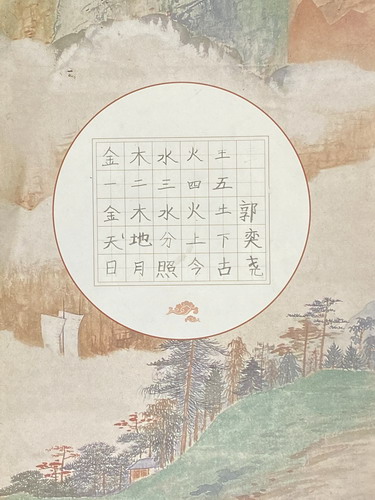 金木水火王
一二三四五
金木水火土
天地分上下
日月照今古
郭奕尧